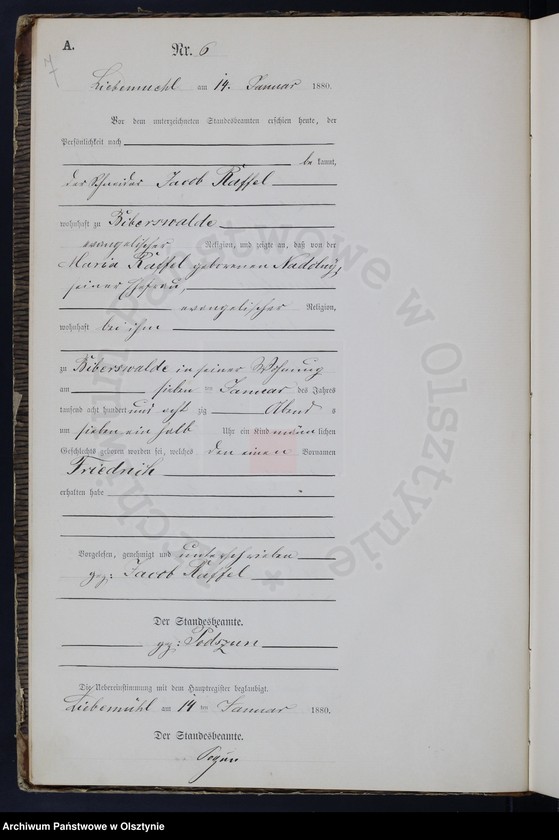 A.
Nr. 6
7
Liebemuehl am 14. Januar 1880.
Vor dem unterzeichneten Standesbeamten erschien heute, der
Persönlichkeit nach
be kannt,
der Schneider Jacob Raffel
wohnhaft zu Biberswalde
evangelischer Religion, und zeigte an, daß von der
Maria Raffel geborenen Naddny,
seiner Ehefrau,
evangelischer Religion,
wohnhaft bei ihm
zu Biberswalde in seiner Wohnung
am sieben ten Januar des Jahres
tausend acht hundert und acht zig Abend s
um sieben ein halb Uhr ein Kind männ lichen
Geschlechts geboren worden sei, welches den einen Vornamen
Friedrich
erhalten habe
Vorgelesen, genehmigt und unterschrieben
gez: Jacob Raffel
Der Standesbeamte.
gez:
Die Uebereinstimmung mit dem Hauptregister beglaubigt.
Liebemühl am 14 ten Januar 1880.
Der Standesbeamte.
Archiwum Państwowe w Olsztynie
Archiwum Państwowe w Olsztynie